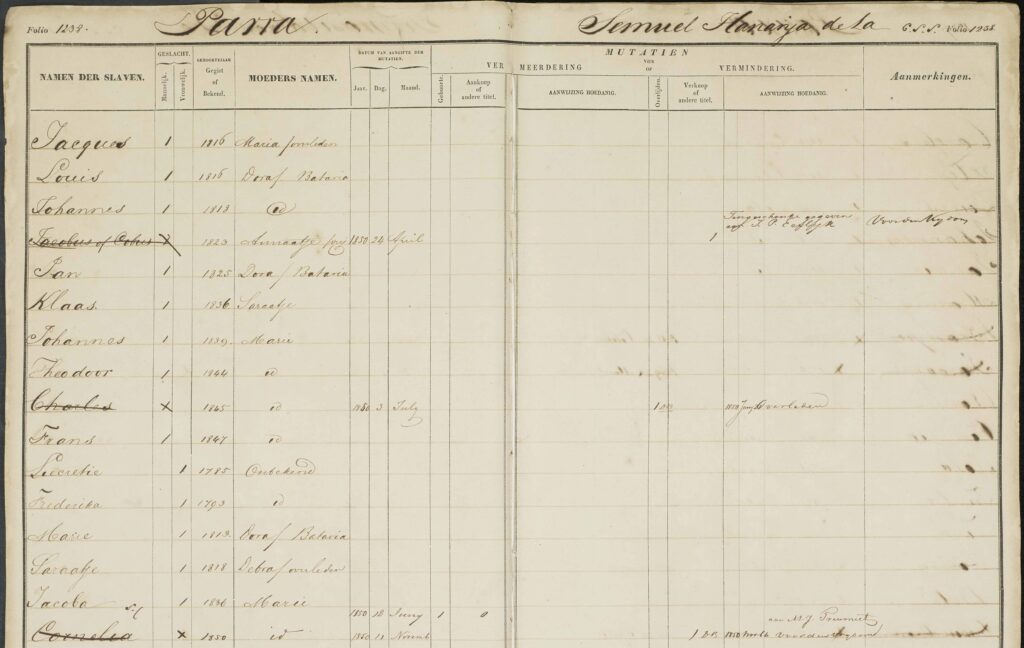 Folio 1234. Parra Semuel Hananja de la G.S.S. Folio 1235
NAMEN DER SLAVEN. GESLACHT. Mannelijk. Vrouwelijk. GEBOORTEJAAR Gegist of Bekend. MOEDERS NAMEN. DATUM VAN AANGIFTE DER MUTATIEN. Jaar. Dag. Maand. MUTATIEN VERMEERDERING Geboorte. Aankoop of andere titel. AANWIJZING HOEDANIG. VER OF VERMINDERING. Overlijden. Verkoop of andere titel. AANWIJZING HOEDANIG. Aanmerkingen.
Jacques 1 1816 Maria overleden
Louis 1 1816 Dora / Batavia
Johannes 1 1813 id
Jacobus of Cobus 1823 Annaatje 1850 24 April 1
Jan 1 1825 Dora / Batavia
Klaas 1 1836 Saraatje
Johannes 1 1839 Marie
Theodoor 1 1844 id
Charles 1845 id 1850 3 July 1 overleden
Frans 1 1847 id
Lucretie 1 1785 Onbekend
Frederika 1 1793 id
Marie 1 1813 Dora / Batavia
Saraatje 1 1818 Debra / overleden
Jacoba 1 1836 Marie
1850 18 Juny 1
Cornelia 1850 id 1850 11 Novemb 1